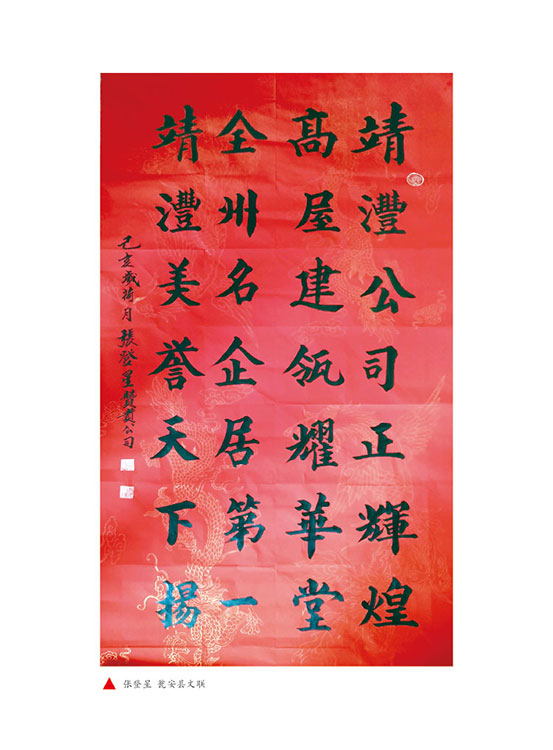 靖灃公司正輝煌
高屋建瓴耀華堂
全州名企居第一
靖灃美誉天下揚
己亥歲荷月張登星贊貴公司
张登星 瓮安县文联